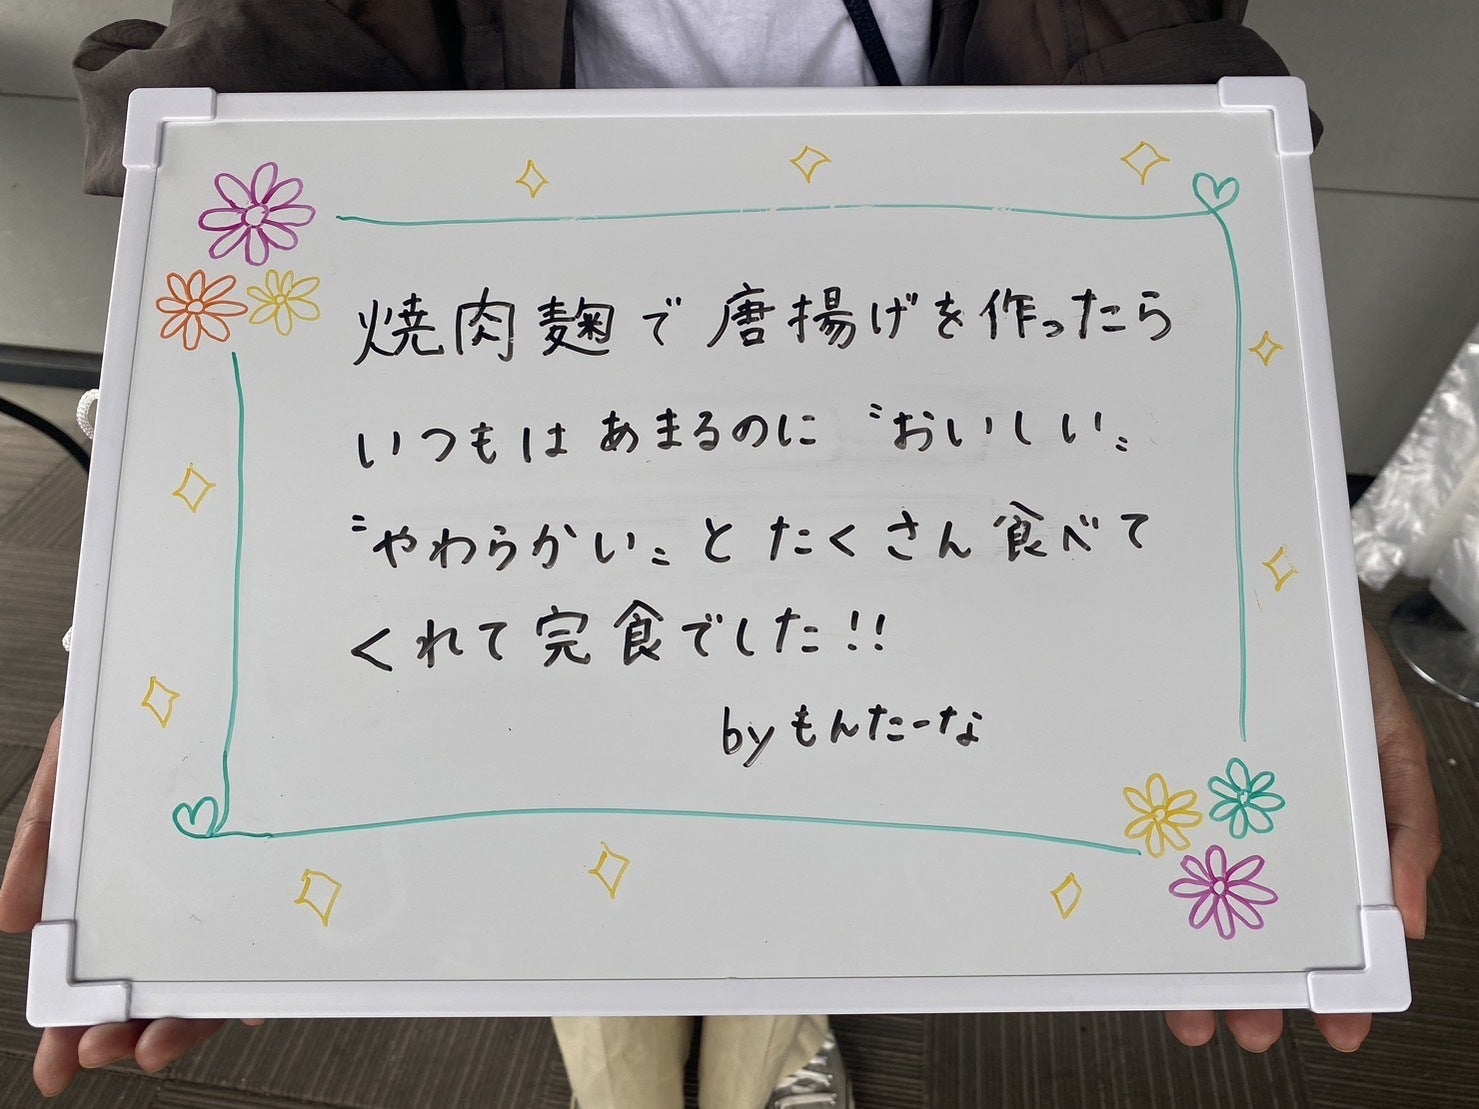 焼肉麹で唐揚げを作ったら
いつもはあまるのに〝おいしい〟
〝やわらかい〟とたくさん食べて
くれて完食でした!!
byもんたーな